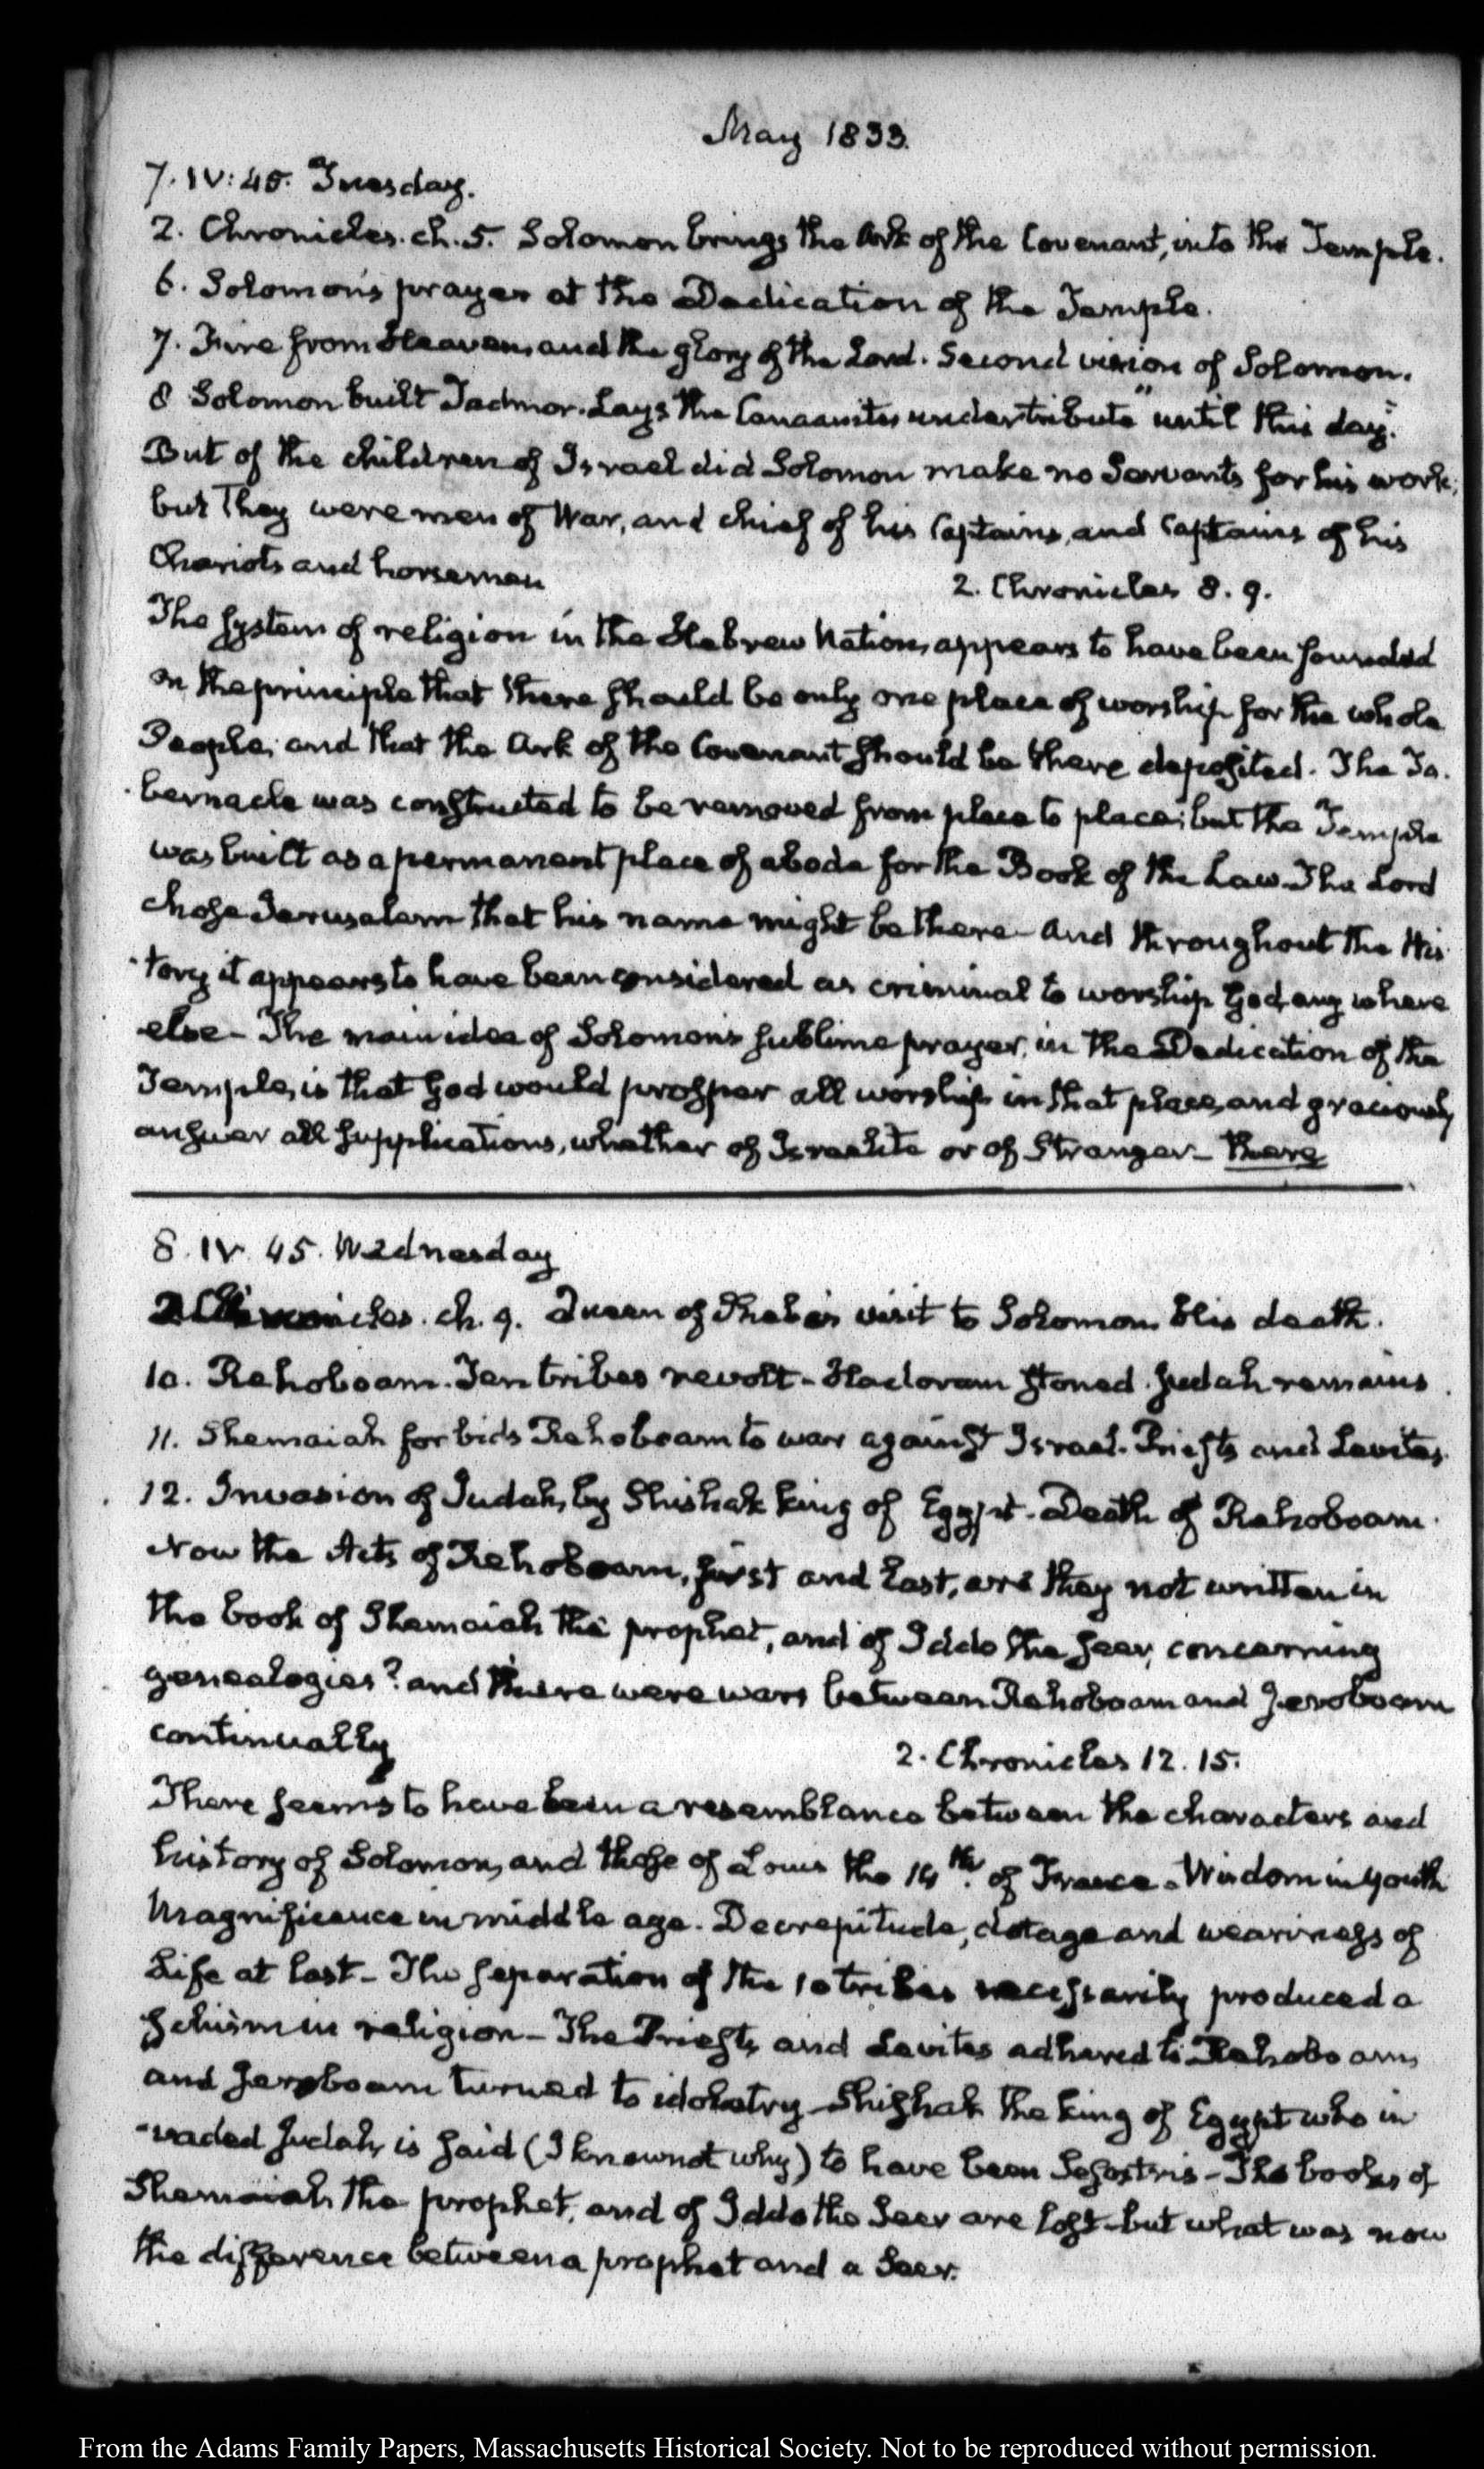 May 1833.
7. IV: 45. Tuesday.
2. Chronicles. ch. 5. Solomon brings the Ark of the Covenant, into the Temple.
6. Solomon's prayer at the Dedication of the Temple.
7. Fire from Heaven, and the glory of the Lord. Second vision of Solomon.
8 Solomon built Tadmor. Lays the Canaanites under tribute "until this day."
But of the children of Israel did Solomon make no Servants for his work;
but they were men of War, and chief of his Captains, and Captains of his
Chariots and horsemen
2. Chronicles 8. 9.
The system of religion in the Hebrew Nation, appears to have been founded
on the principle that there should be only one place of worship for the whole
People; and that the Ark of the Covenant should be there deposited. The Ta-
-bernacle was constructed to be removed from place to place; but the Temple
was built as a permanent place of abode for the Book of the Law. The Lord
chose Jerusalem that his name might be there - and throughout the His
-tory it appears to have been considered as criminal to worship God any where
else - The main idea of Solomon's sublime prayer, in the Dedication of the
Temple, is that God would prosper all worship in that place, and graciously
answer all supplications, whether of Israelite or of Stranger - there
8. IV. 45. Wednesday
2 Chronicles. ch. 9. Queen of Sheba's visit to Solomon. His death.
10. Rehoboam. Ten tribes revolt - Hadoram stoned. Judah remains.
11. Shemaiah forbids Rehoboam to war against Israel. Priests and Levites.
12. Invasion of Judah, by Shishak king of Egypt - Death of Rehoboam.
Now the Acts of Rehoboam, first and last, are they not written in
the book of Shemaiah the prophet, and of Iddo the seer, concerning
genealogies? and there were wars between Rehoboam and Jeroboam
continually
2. Chronicles 12. 15.
There seems to have been a resemblance between the characters and
history of Solomon, and those of Louis the 14th. of France - Wisdom in youth
Magnificence in middle age. Decrepitude, dotage and weariness of
Life at last - The separation of the 10 tribes necessarily produced a
schism in religion - The Priests, and Levites adhered to Rehoboam,
and Jeroboam turned to idolatry - Shishak the king of Egypt who in
-vaded Judah, is said (I know not why) to have been Sesostris - The books of
Shemaiah the prophet, and of Iddo the Seer are lost - but what was now
the difference between a prophet and a Seer.
From the Adams Family Papers, Massachusetts Historical Society. Not to be reproduced without permission.